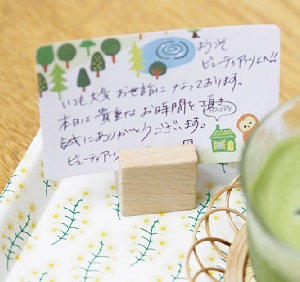 ようこそ
ビューティアーリムへ!!
いつも大変 お世話に なっております。
本日は 貴重な お時間を 頂き
誠にありがとうございます。
HAPPY
ビューティアーリ